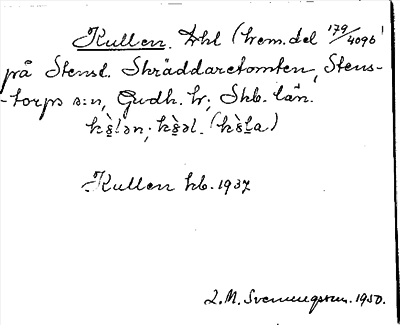 Kullen. Lhl (hem.del 179/4096)
på Stensl. Skräddaretomten, Stens-
-torps s:n, Gudh. hr; Skb. län.
Kullen hb. 1937
L.M. Svenungsson. 1950.